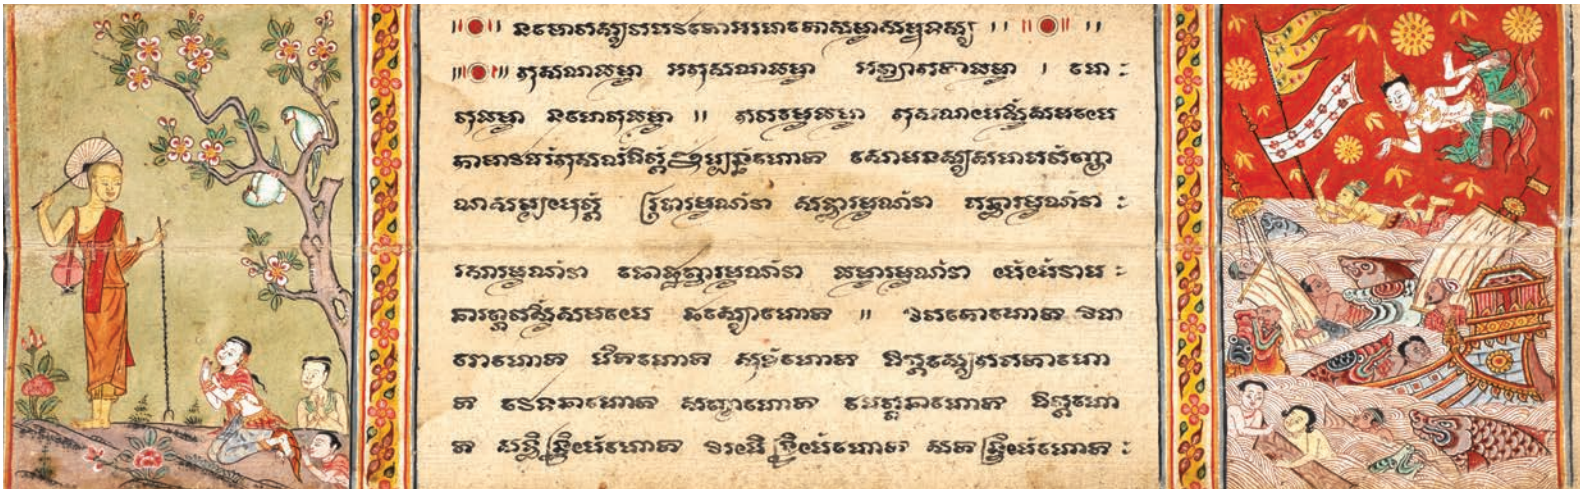 នមោតស្សភគវតោអរហតោសម្មាសម្ពុទស្ស ។ ។
កុសលាធម្មា អកុសលាធម្មា អព្យាកតាធម្មា ។ ហេ
តុធម្មា នហេតុធម្មា ៕ កតមេធម្មា កុសលាយស្មឹសមយេ
កាមាវចរំកុសលំចិត្តំឧប្បន្នំហោតិ សោមនស្សសហគតំញា
ណសម្បយុត្តំ រូបារម្មណំវា សទ្ទារម្មណំវា គន្ធារម្មណំវា
រសារម្មណំវា ផោដ្ឋព្វារម្មណំវា ធម្មារម្មណំវា យំយំវាប
នារព្ភតស្មឹសមយេ ផស្សោហោតិ ៕ វិតកោហោតិ វិចា
រោហោតិ បីតិហោតិ សុខំហោតិ ចិត្តស្សេកគតាហោ
តិ វេទនាហោតិ សញ្ញាហោតិ ចេតនាហោតិ ចិត្តំហោ
តិ សទ្ធិន្ទ្រិយំហោតិ វិរិយិន្ទ្រិយំហោតិ សតិន្ទ្រិយំហោតិ